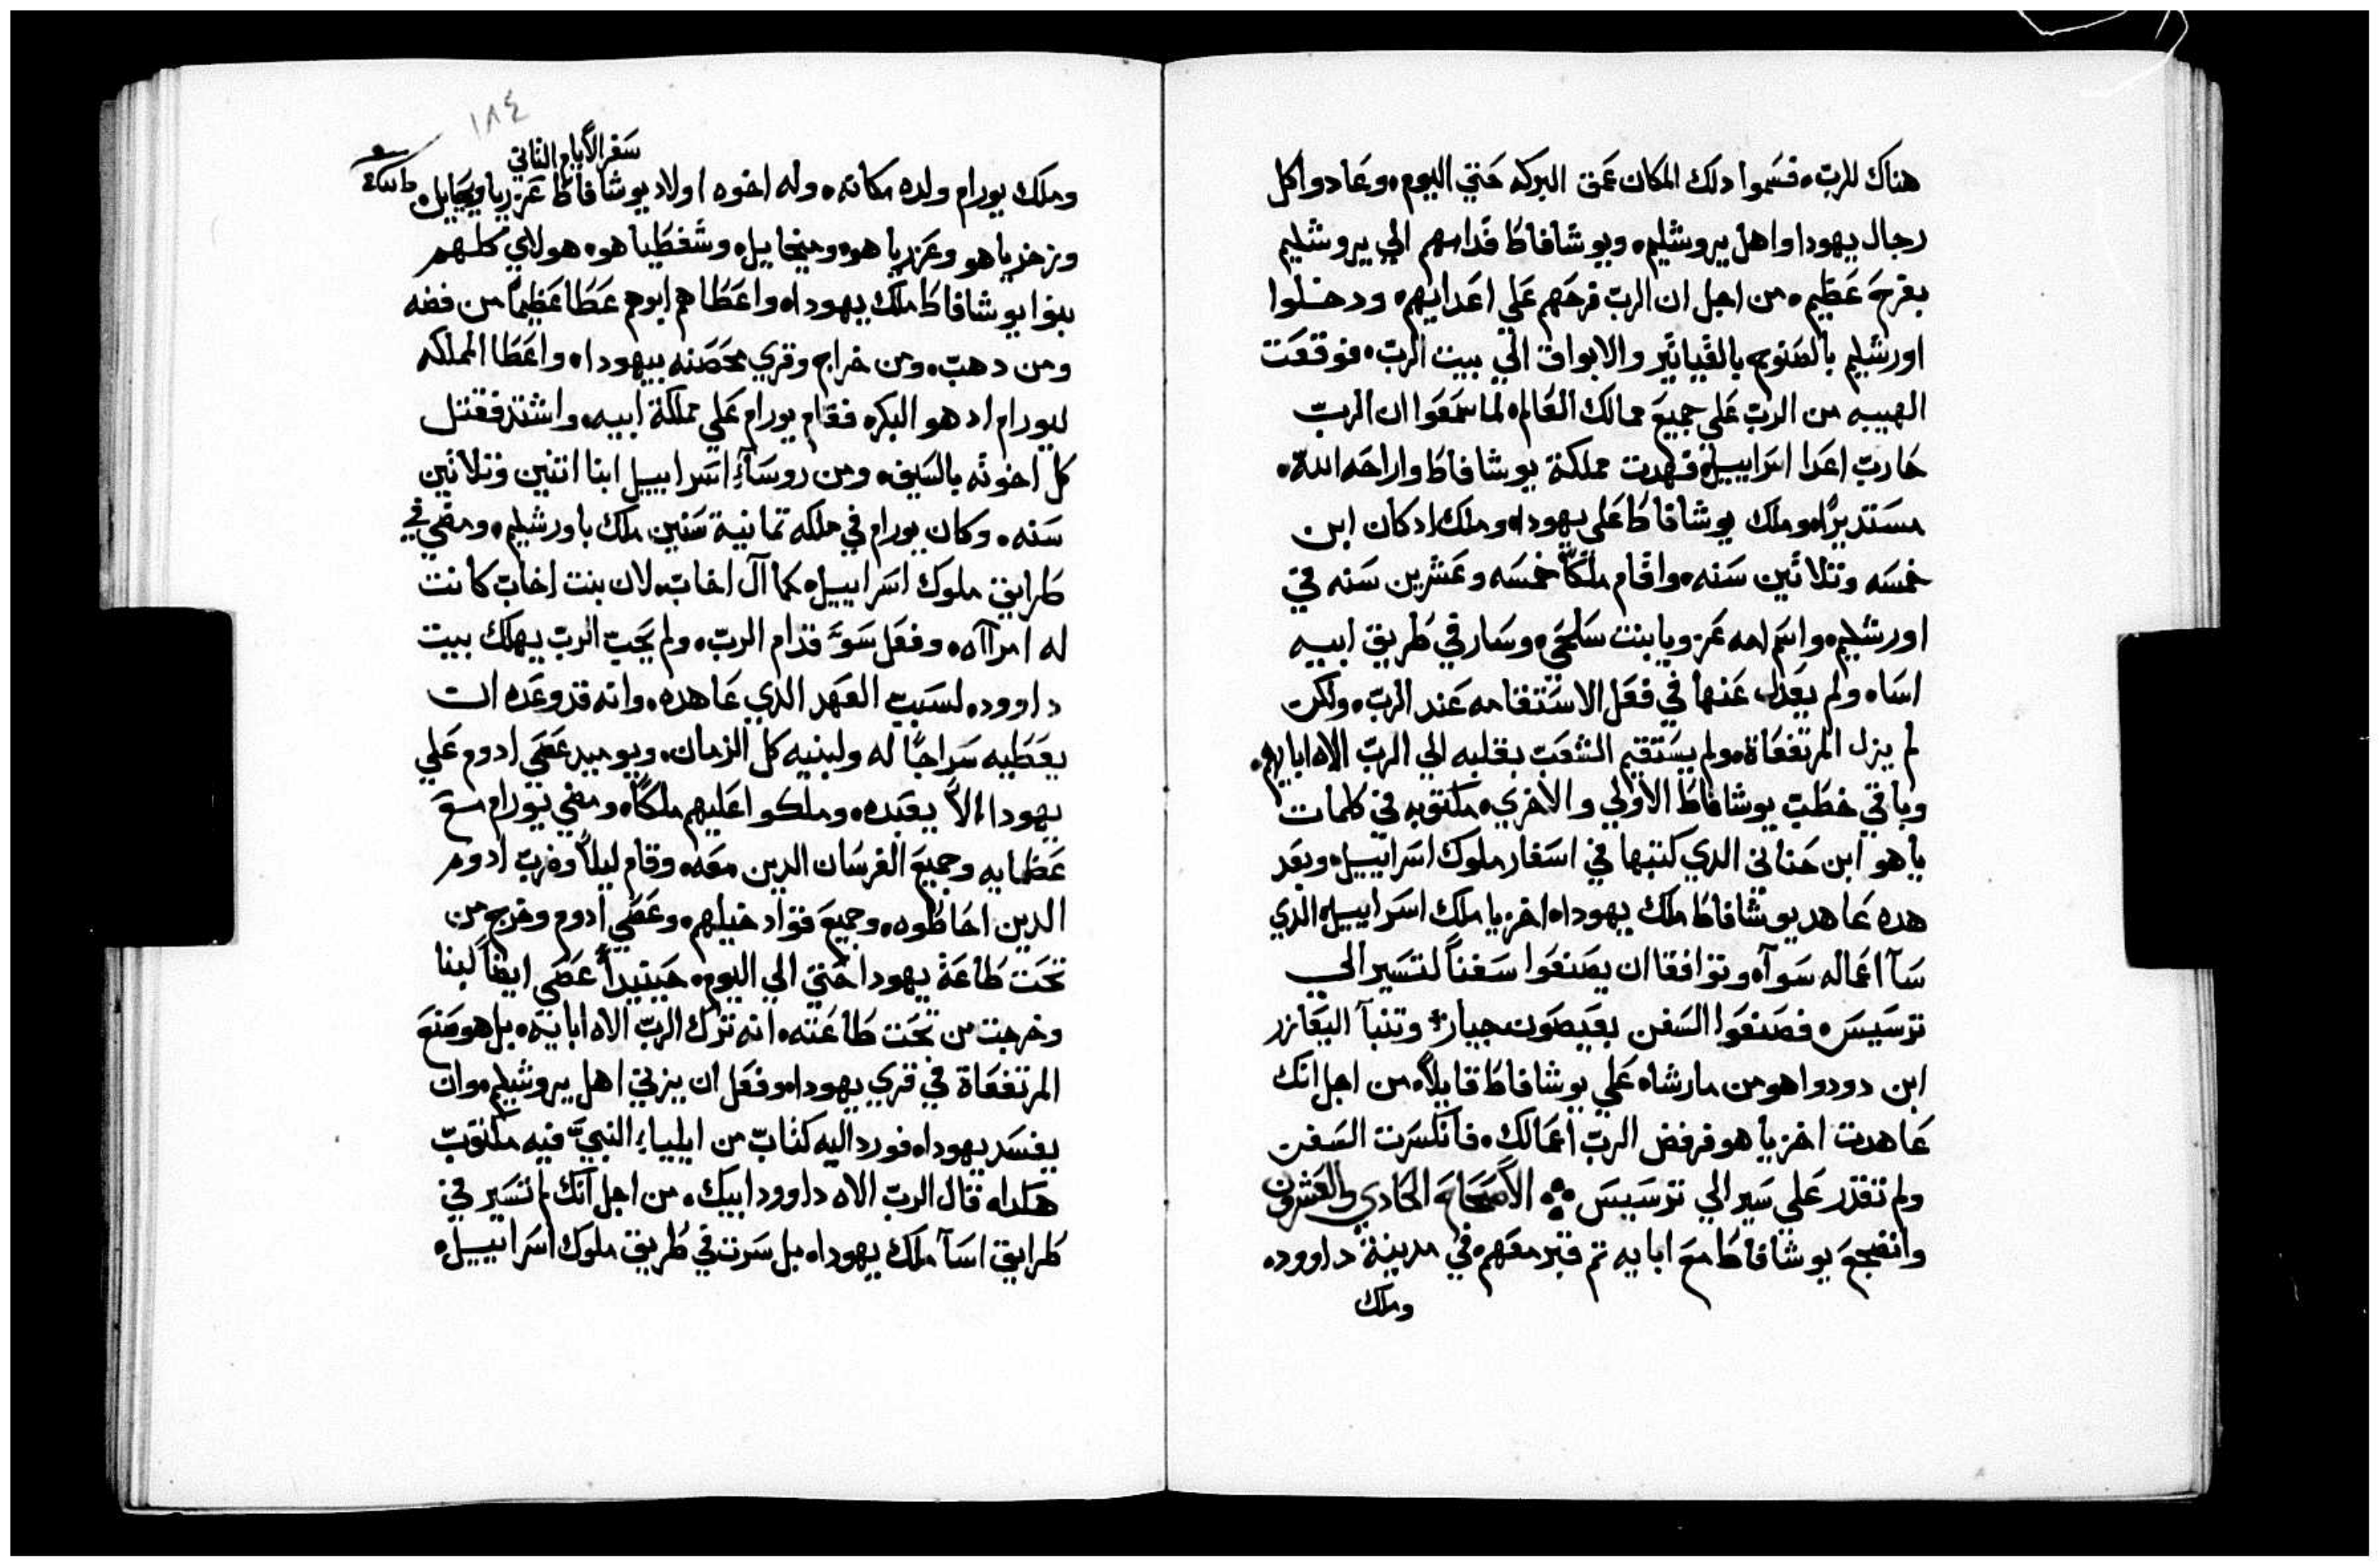 هناك للرب، فسموا دلك المكان عمق البركه حتي اليوم، وعادوا كل
رجال يهودا واهل يروشليم، ويوشافاط قدامهم الي يروشليم
بفرح عظيم، من اجل ان الرب فرحهم علي اعدايهم، ودخلوا
اورشليم بالصنوج بالقياتير والابواق الي بيت الرب، فوقعت
الهيبه من الرب علي جميع ممالك العالم، لما سمعوا ان الرب
حارب اعدا اسراييل، فهدت مملكة يوشافاط واراحه الله،
مستديرًا، وملك يوشافاط علي يهودا، وملك اد كان ابن
خمسه وتلاتين سنه، واقام ملكًا خمسه وعشرين سنه في
اورشليم، واسم امه عزوبا بنت سلحي، وسار في طريق ابيه
اسا، ولم يعدل عنها في فعل الاستقامه عند الرب، ولكن
لم يزل المرتفعاة، ولم يستقيم الشعب بقلبه الي الرب الاه اباييهم،
وباقي خطب يوشافاط الاولي والاخري، مكتوبه في كلمات
ياهو ابن حناني الدي كتبها في اسفار ملوك اسراييل، وبعد
هده عاهد يوشافاط ملك يهودا، اخزيا ملك اسراييل، الدي
سآ اعماله سوآ، وتوافقا ان يصنعوا سفنًا لتسير الي
ترسيس، فصنعوا السفن بعيصون جبار، وتنبآ اليعازر
ابن دودوا هو من مارشاه علي يوشافاط قايلًا، من اجل انك
عاهدت اخزيا هو فرفض الرب اعمالك، فانكسرت السفن
ولم تقدر علي سير الي ترسيس ؞ الاصحاح الحادي والعشرون
وانضجع يوشافاط مع ابايه تم قبر معهم في مدينة داوود،
وملك
١٨٤
سفر الأيام الثاني
وملك يورام ولده مكانه، وله اخوه اولاد يوشافاط عزريا ويحاييل،
وزخريا هو وعزريا هو، وميخاييل، وشفطيا هو، هولاي كلهم
بنوا يوشافاط ملك يهودا، واعطاهم ابوهم عطا عظيمًا من فضه
ومن دهب، ومن خراج وقري محصنه بيهودا، واعطا المملكه
ليورام اد هو البكر، فقام يورام علي مملكة ابيه، واشتد فقتل
كل اخوته بالسيف، ومن روسآء اسراييل ابنا اتنين وتلاتين
سنه، وكان يورام في ملكه تمانية سنين ملك باورشليم، ومضي في
طرايق ملوك اسراييل، كما آل اخاب، لان بنت اخاب كانت
له امراآه، وفعل سوَّ قدام الرب، ولم يحب الرب يهلك بيت
داوود، لسبب العهد الدي عاهده، وانه قد وعده ان
يعطيه سراجًا له ولبنيه كل الزمان، ويوميد عصي ادوم علي
يهودا الّا يعبده، وملكوا عليهم ملكًا، ومضي يورام مع
عظمايه وجميع الفرسان الدين معه، وقام ليلًا وضرب ادوم
الدين احاطوه، وجميع قواد خيلهم، وعصي ادوم وخرج من
تحت طاعة يهودا حتي الي اليوم، حينيدًا عصي ايضًا لبنا
وخرجت من تحت طاعته، انه ترك الرب الاه اباييه، بل هو صنع
المرتفعاة في قري يهودا، وفعل ان يزني اهل يروشليم، وان
يفسد يهودا، فورد اليه كتاب من ايلياء النبيّ، فيه مكتوب
هكدا، قال الرب الاه داوود ابيك، من اجل انك لم تسير في
طرايق اسآ ملك يهودا، بل سرت في طريق ملوك اسراييل،